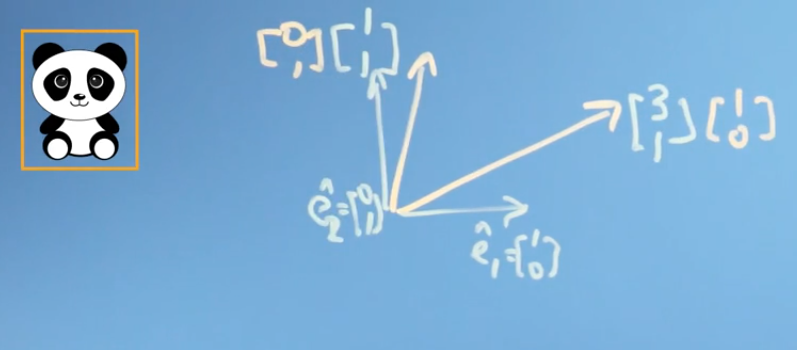 [0 1] [1 1]
[3 1] [1 0]
ê₂=[0 1]
ê₁=[1 0]